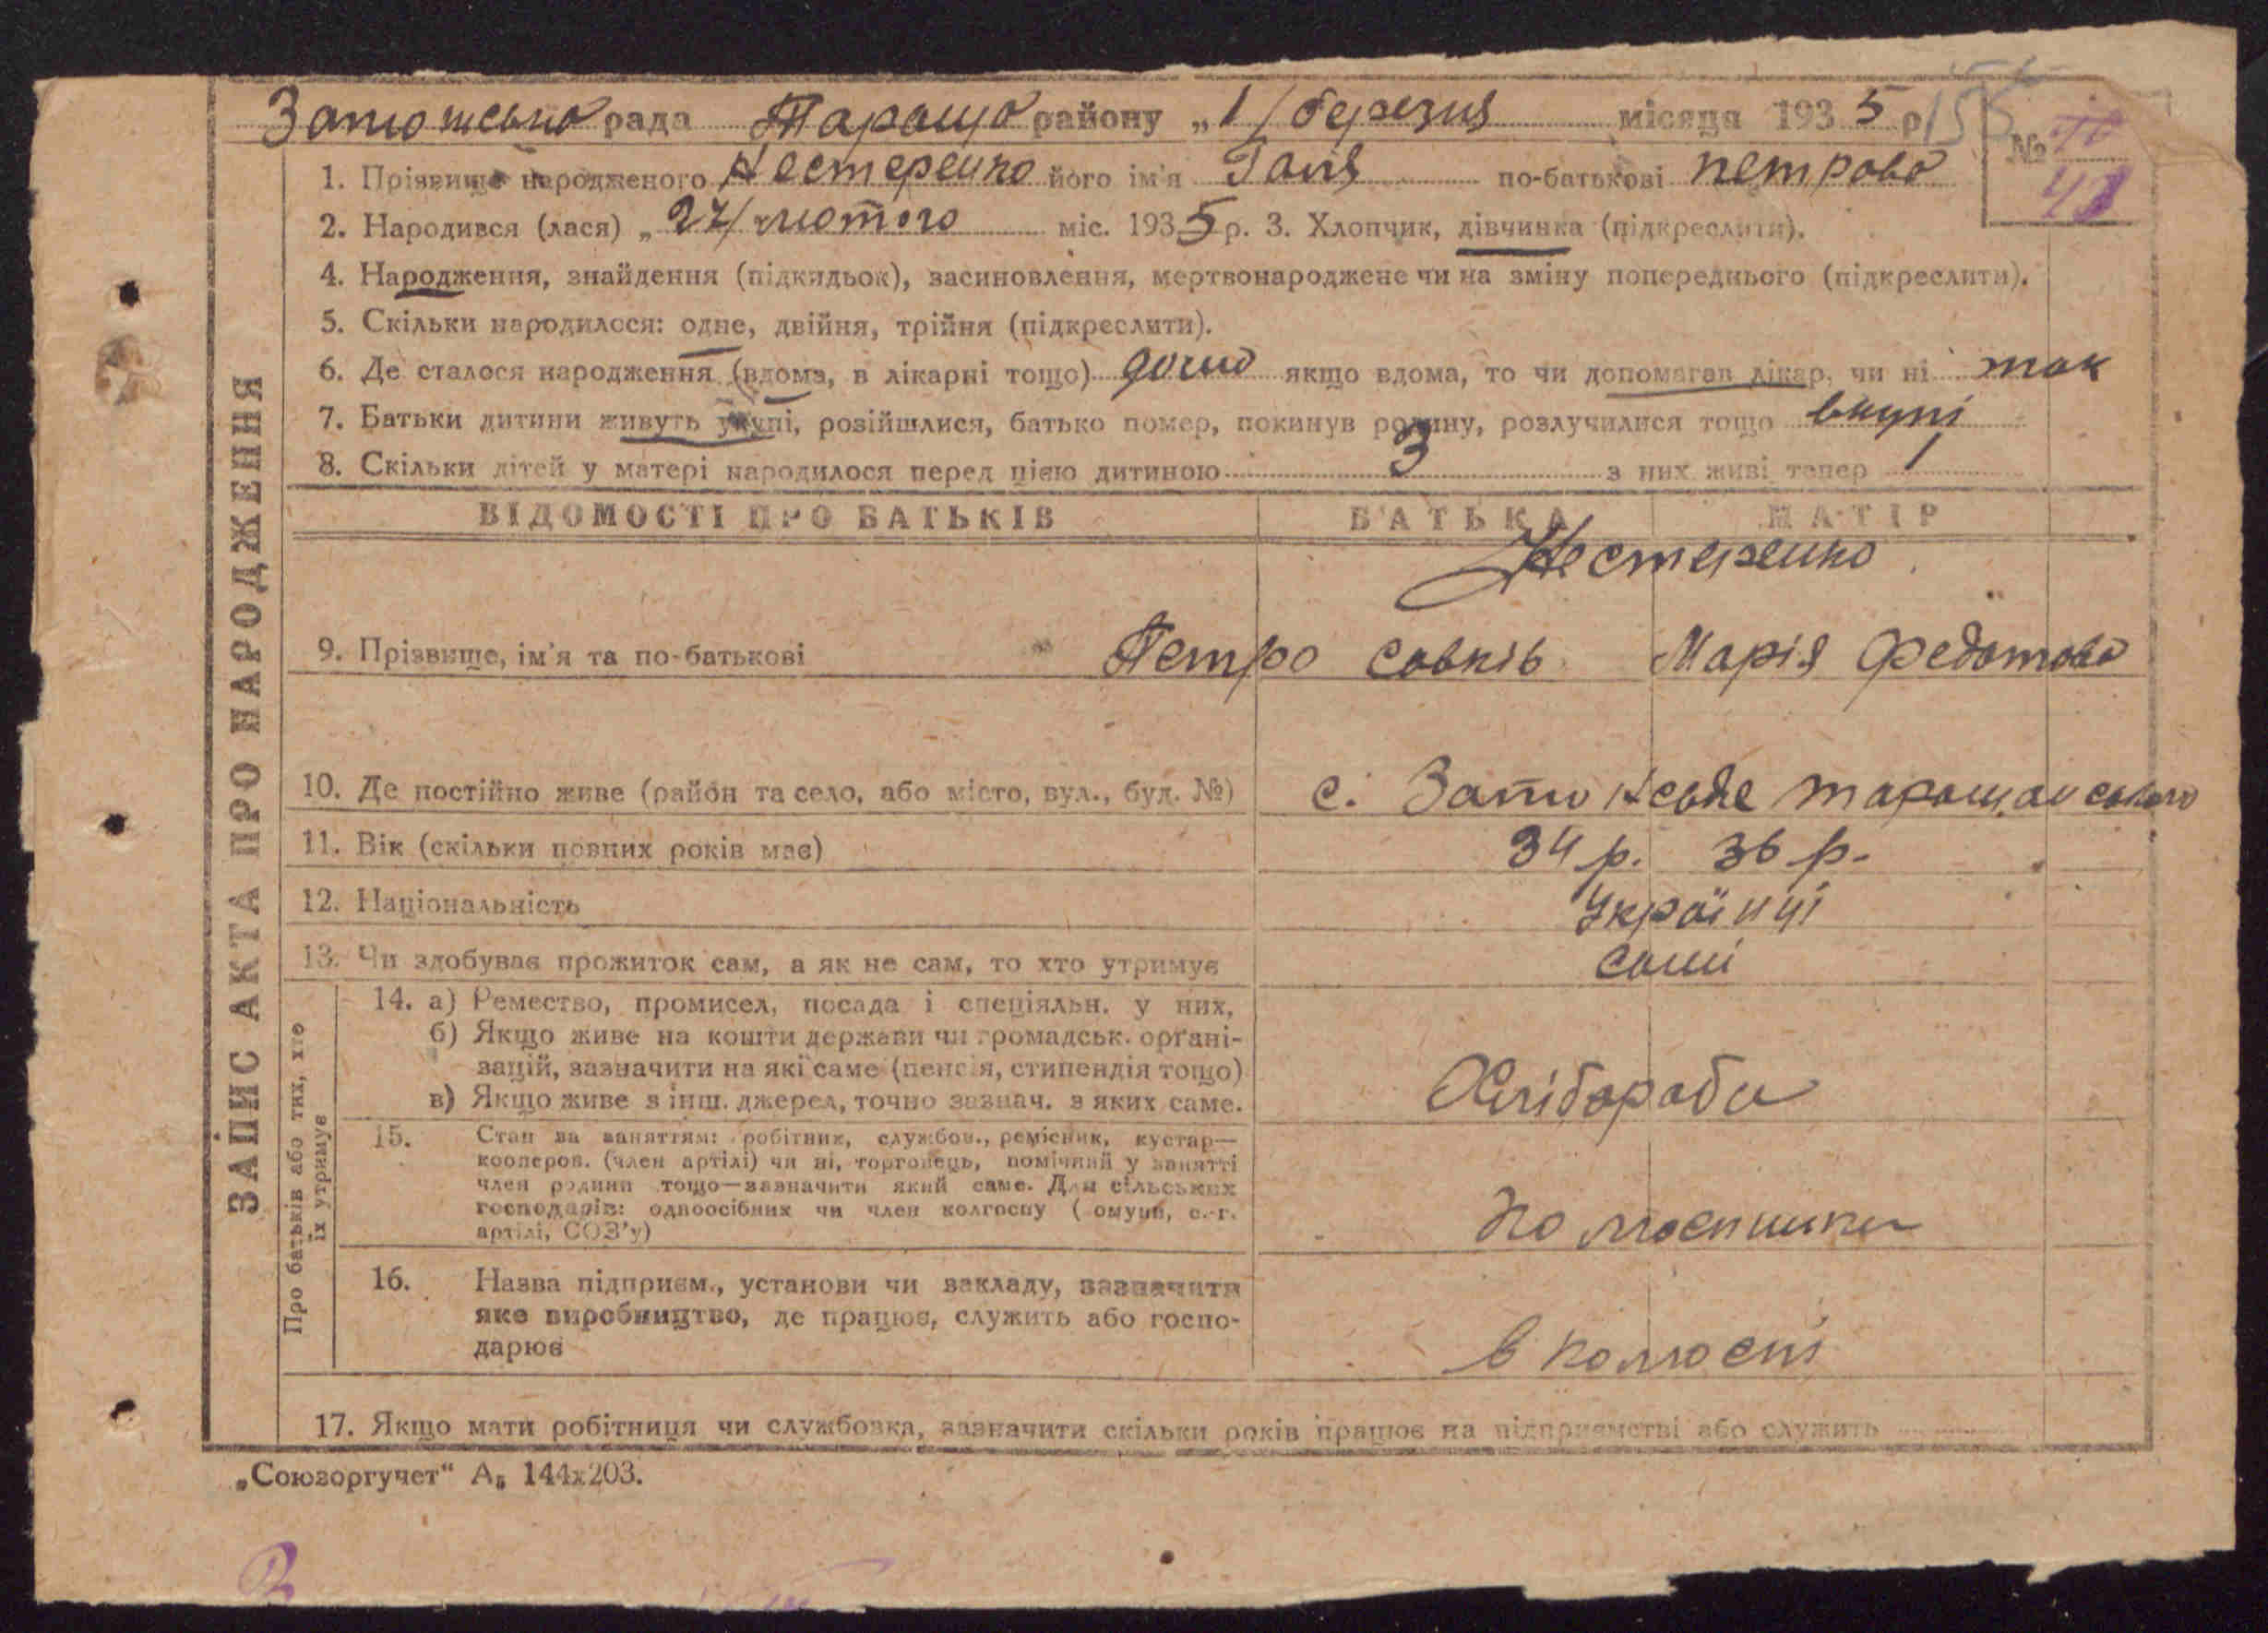 рада Тараща району „1/ березня місяця 1935 р. 155
№ 48
1. Прізвище народженого Нестеренко його ім'я Галя по-батькові петрова
2. Народився (лася) „27/ лютого міс. 1935 р. 3. Хлопчик, дівчинка (підкреслити).
4. Народження, знайдення (підкидьок), засиновлення, мертвонароджене чи на зміну попереднього (підкреслити).
5. Скільки народилося: одне, двійня, трійня (підкреслити).
6. Де сталося народження (вдома, в лікарні тощо) дома якщо вдома, то чи допомагав лікар, чи ні так
7. Батьки дитини живуть укупі, розійшлися, батько помер, покинув родину, розлучилися тощо вкупі
8. Скільки дітей у матері народилося перед цією дитиною 3 з них живі тепер 1
ВІДОМОСТІ ПРО БАТЬКІВ БАТЬКА МАТІР
Нестеренко
9. Прізвище, ім'я та по-батькові Петро Савків Марія Федотова
10. Де постійно живе (район та село, або місто, вул., буд. №) с. таращанського
11. Вік (скільки повних років має) 34 р. 36 р.
12. Національність Українці
13. Чи здобуває прожиток сам, а як не сам, то хто утримує самі
14. а) Ремество, промисел, посада і спеціяльн. у них,
б) Якщо живе на кошти держави чи громадськ. органі-
зацій, зазначити на які саме (пенсія, стипендія тощо)
в) Якщо живе з інш. джерел, точно зазнач. з яких саме.
Хлібороби
15. Стан за заняттям: робітник, службов., ремісник, кустар—
кооперов. (член артілі) чи ні, торговець, помічний у занятті
член родини тощо—зазначити який саме. Для сільських
господарів: одноосібник чи член колгоспу ( омуни, с.-г.
артілі, СОЗ'у)
Колгоспники
16. Назва підприєм., установи чи закладу, зазначити
яке виробництво, де працює, служить або госпо-
дарює
в колгоспі
17. Якщо мати робітниця чи службовка, зазначити скільки років працює на підприємстві або служить
ЗАПИС АКТА ПРО НАРОДЖЕННЯ
Про батьків або тих, хто
їх утримує
„Союзоргучет“ А₅ 144х203.